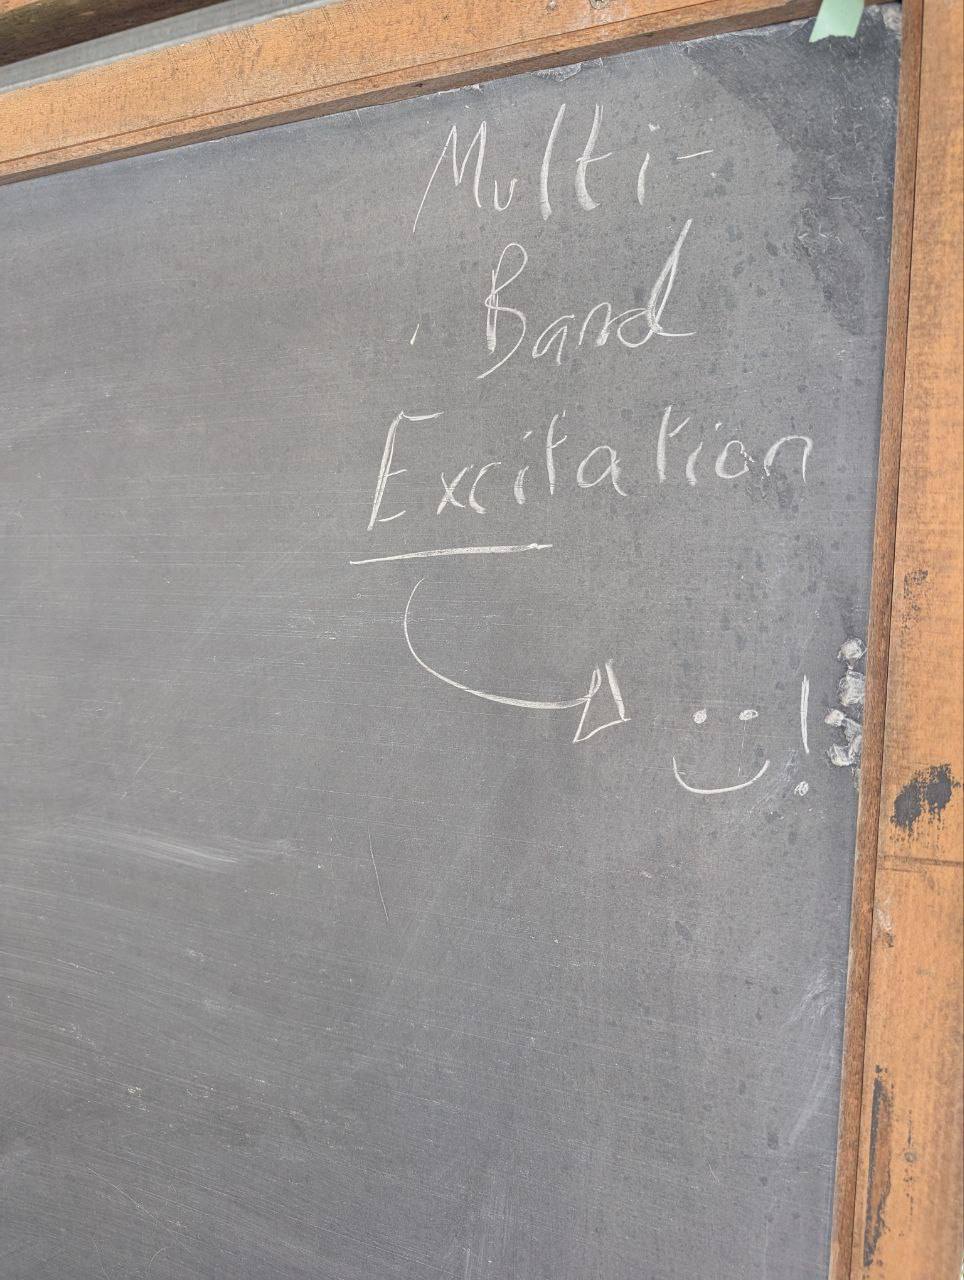 Multi-
Band
Excitation
:)!